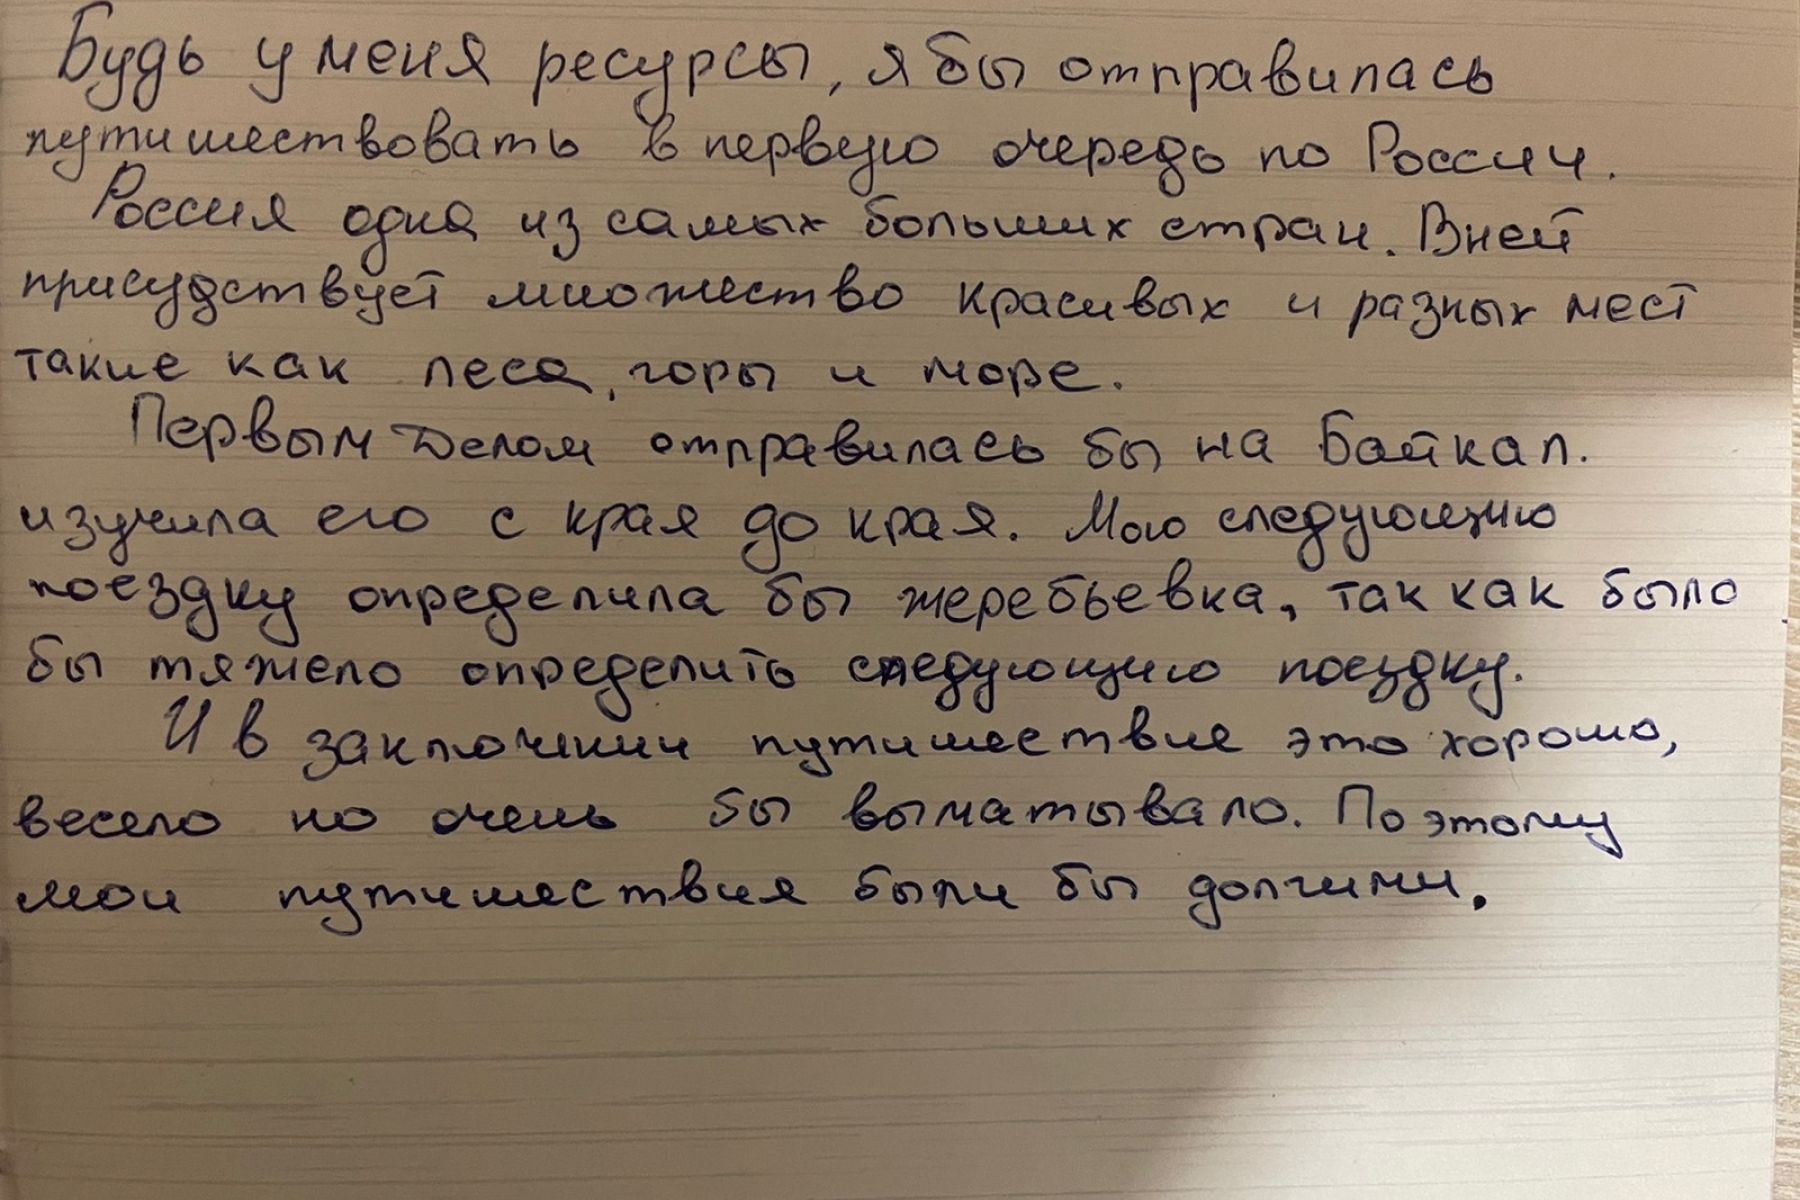 Будь у меня ресурсы, я бы отправилась
путишествовать в первую очередь по России.
Россия одна из самых больших стран. В ней
присудствует множество красивых и разных мест
такие как леса, горы и море.
Первым делом отправилась бы на Байкал.
изучила его с края до края. Мою следующию
поездку определила бы жеребьевка, так как было
бы тяжело определить следующию поездку.
И в заключении путишествие это хорошо,
весело но очень бы выматывало. Поэтому
мои путишествия были бы долгими.